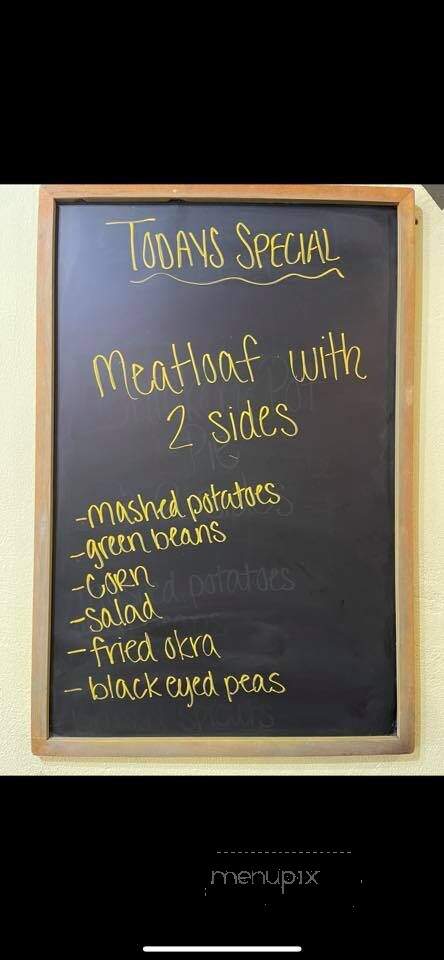 TODAYS SPECIAL
Meatloaf with
2 sides
-mashed potatoes
-green beans
-corn
-salad
-fried okra
-black eyed peas
menupix